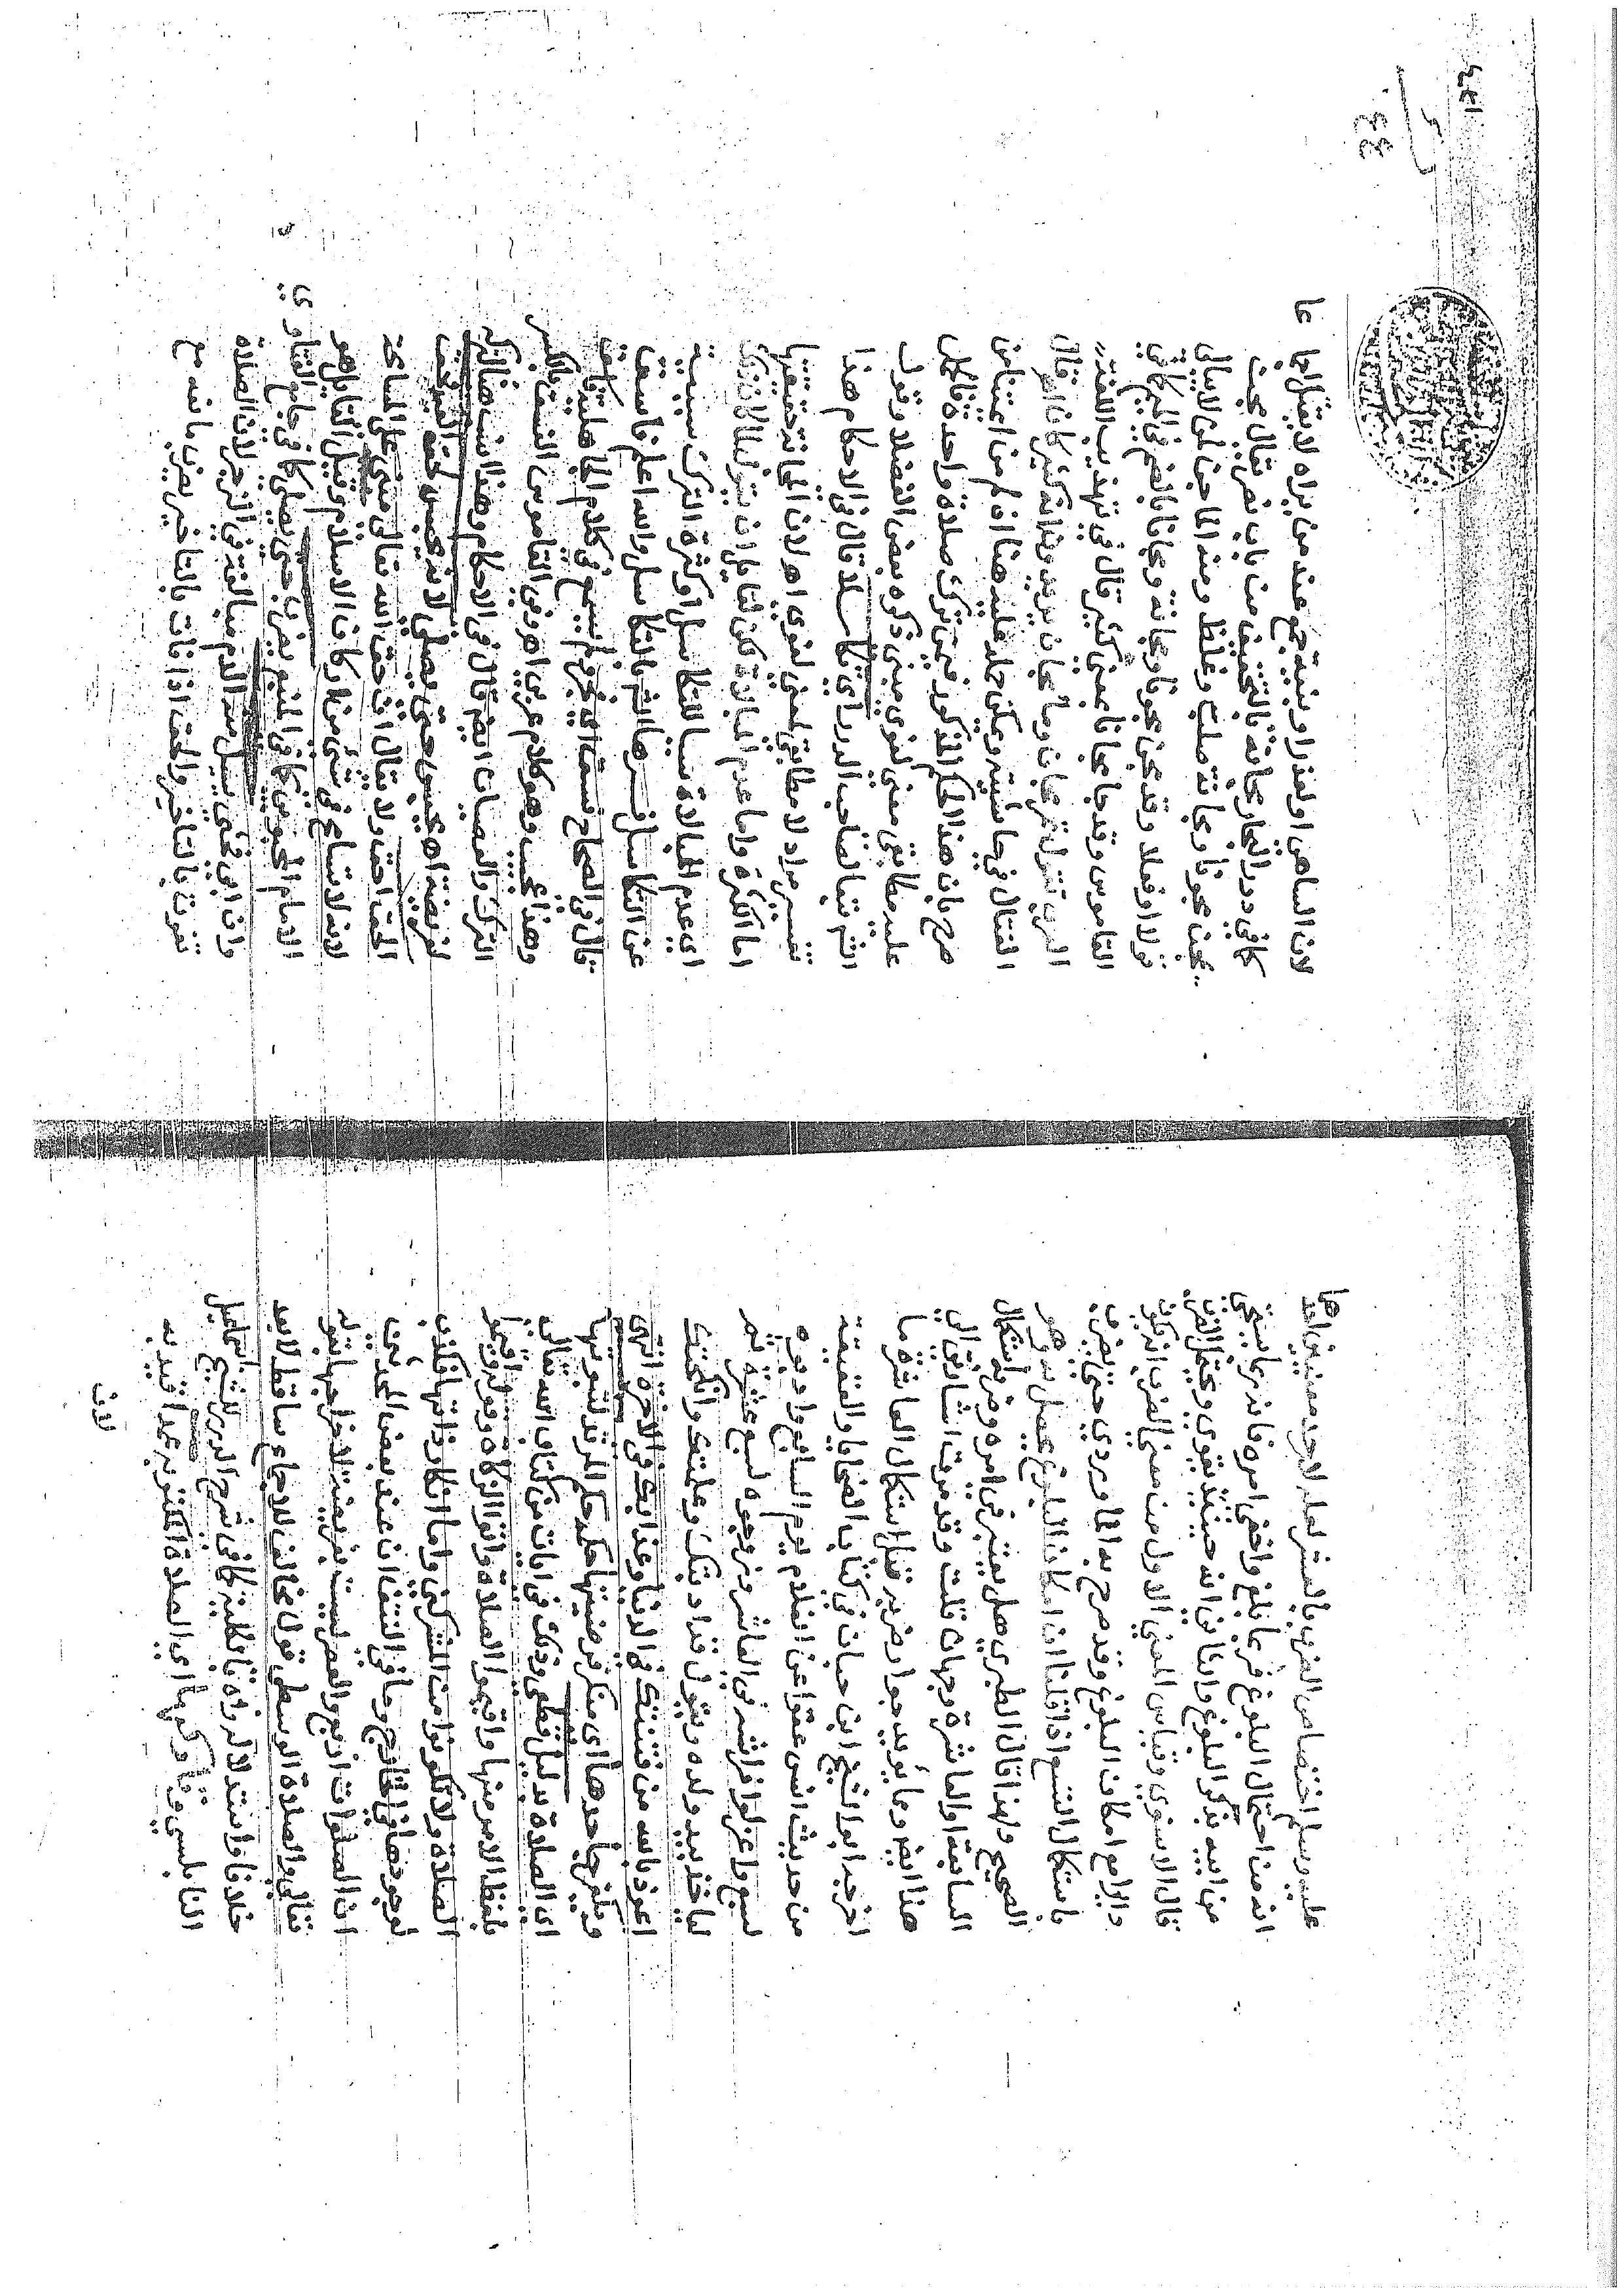 عليه وسلم اختصاص الضرب بالعشر لعله لاحد معنيين احدهما
انه من احتمال البلوغ فربما بلغ واخفى امره فانه ربما يستحي
من ابيه بذكر البلوغ والثاني انه حينئذ يقوى ويحتمل الضرب
قال الاسنوي وقياس المعنى الاول من معنى الضرب انه يكون
دائرا مع امكان البلوغ وقد صرح به الماوردي حتى يضرب
باستكمال التسع اذا قلنا ان امكان البلوغ يحصل به وهو
الصحيح ولهذا قال الطبري هل يعتبر في امره وضربه استكمال
السابعة او العاشرة وجهان قلت وقد مرت اشارتي الى
هذا ايضا ومما يؤيد جواز ضربه قبل استكمال العاشرة ما
اخرجه ابو الشيخ ابن حبان في كتاب الضحايا والعقيقة
من حديث انس عقوا عن الغلام يوم السابع وادبوه
لسبع واعزلوا فراشه في العاشر وزوجوه لسبع عشرة ثم
لياخذ بيد ولده ويقول قد ادبتك وعلمتك وانكحتك
اعوذ بالله من فتنتك في الدنيا وعذابك في الاخرة انتهى
ويكفر جاحدها اي منكر فرضيتها حكمه حكم المرتد لثبوتها
اي الصلاة بدليل قطعي وذلك في ايات من كتاب الله تعالى
بلفظ الامر منها واقيموا الصلاة واتوا الزكاة وقوله واقيموا
الصلاة ولا تكونوا من المشركين واما انكار ذاتها فكفر
لوجودها في الخارج وما في النتف ان عند بعض المحدثين
ان الصلوات اربع والعصر ليست بفريضة لاخراجها بقوله
تعالى والصلاة الوسطى قول مخالف للاجماع ساقط لا يعد
خلافا كما في شرح الدرر للشيخ اسماعيل
النابلسي وتاركها اي الصلاة المكتوبة عمدا قيد به
لان
لان الساهي او لعذر او بنية جمع عند من يراه لا يقتل اجماعا
كما في درر البحار مجانة بالتخفيف من باب نصر يقال مجن
يمجن مجونا ومجانة صلب وغلظ ومنه الماجن لمن لا يبالي
قولا وفعلا وقد مجن مجونا ومجانة ومجانا بالضم في
القاموس وقد جاء مجانا بمعنى كثير قال في تهذيب اللغة
العرب تقول تمر مجان وماء مجان يريدون انه كثير كاف اهـ قال
القتال في حاشيته ويمكن حمله عليه هنا اذ لم من اعتنا من
صرح بان هذا الحكم المذكور فيمن ترك صلاة واحدة فالحمل
عليه مطابق معنى لغوي مبني ذكره بعض الفضلاء وقول
الشم تبعا لصاحب الدرر اي تكاسلا قال في الاحكام هذا
تفسير مراد لا مطابق لمعنى لغوي اهـ لان المجانة حقيقتها
اما الكثرة واما عدم المبالاة لكن لقائل ان يقول لما كان ترك
اي عدم المبالاة سببا للتكاسل او كثرة الترك سببية
عن التكاسل فسرها الشم بالتكاسل والله اعلم فاسق
قال في الصحاح فسق اي فجر لم يسمع في كلام الجاهلية فاسق
وهذا عجيب وهو كلام عربي اهـ وفي القاموس الفسق بالكسر
الترك والعصيان ايضا قال في الاحكام وهذا انسب هنا لتركه
لفريضة اهـ يحبس حتى يصلي لانه يحبس لحق العبد فحق
الحق احق ولا يقال ان حق الله تعالى مبني على المسامحة
لانه لا تسامح في شيء من اركان الاسلام وقيل القائل هو
الامام المحبوبي كما في المنبع يضرب حتى يصلي كما في جامع الفتاوي
وان ابى فحتى يسيل منه الدم مبالغة في الزجر لان الصلاة
تفوت بالتاخير والحق اذا فات بالتاخير يضرب مانعه ح